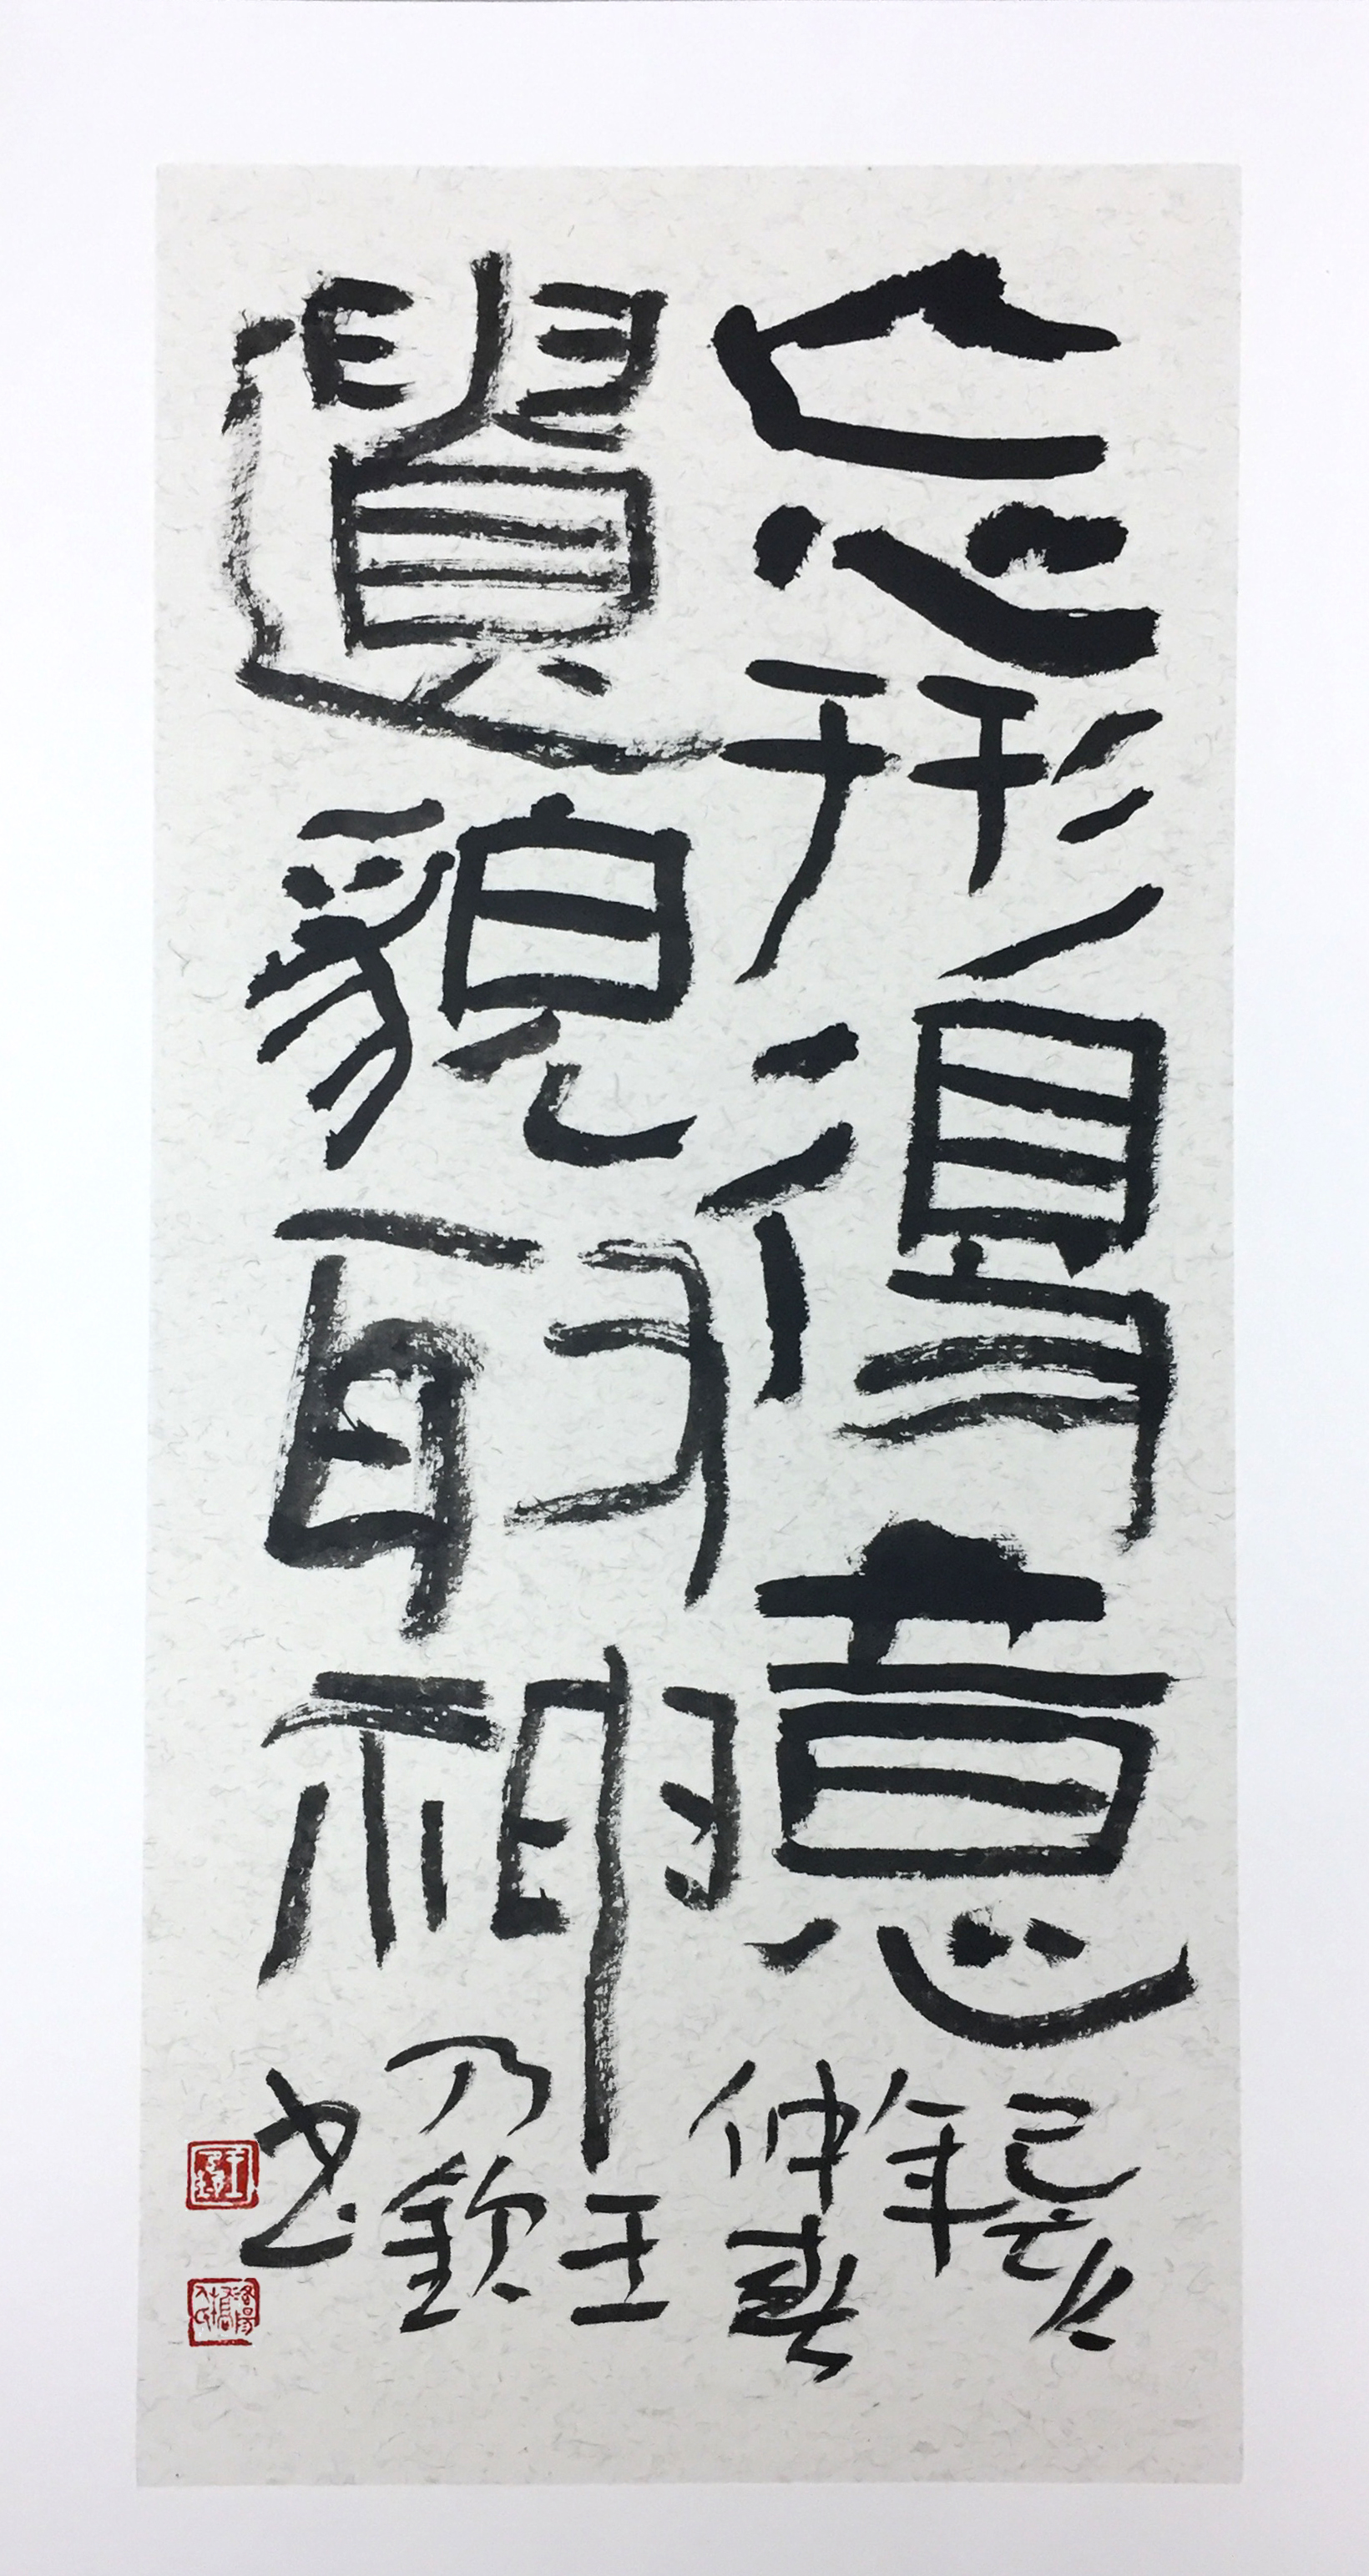 忘形得意
遺貌取神
己亥
年
仲春
王
乃欽
书